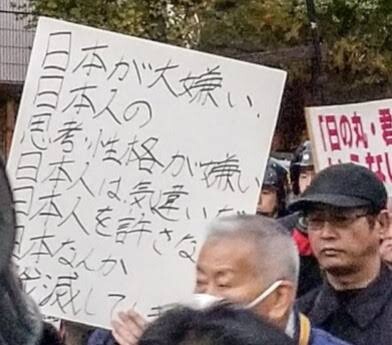 日本が大嫌い.
日本人の
思考・性格が嫌い
日本人は気違いだ
日本人を許さな
日本なんか
滅して
「日の丸・君